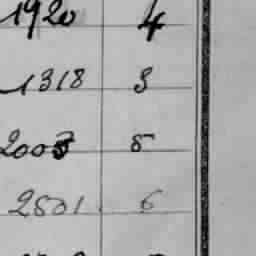 1920 4
1318 3
2003 5
2501 6